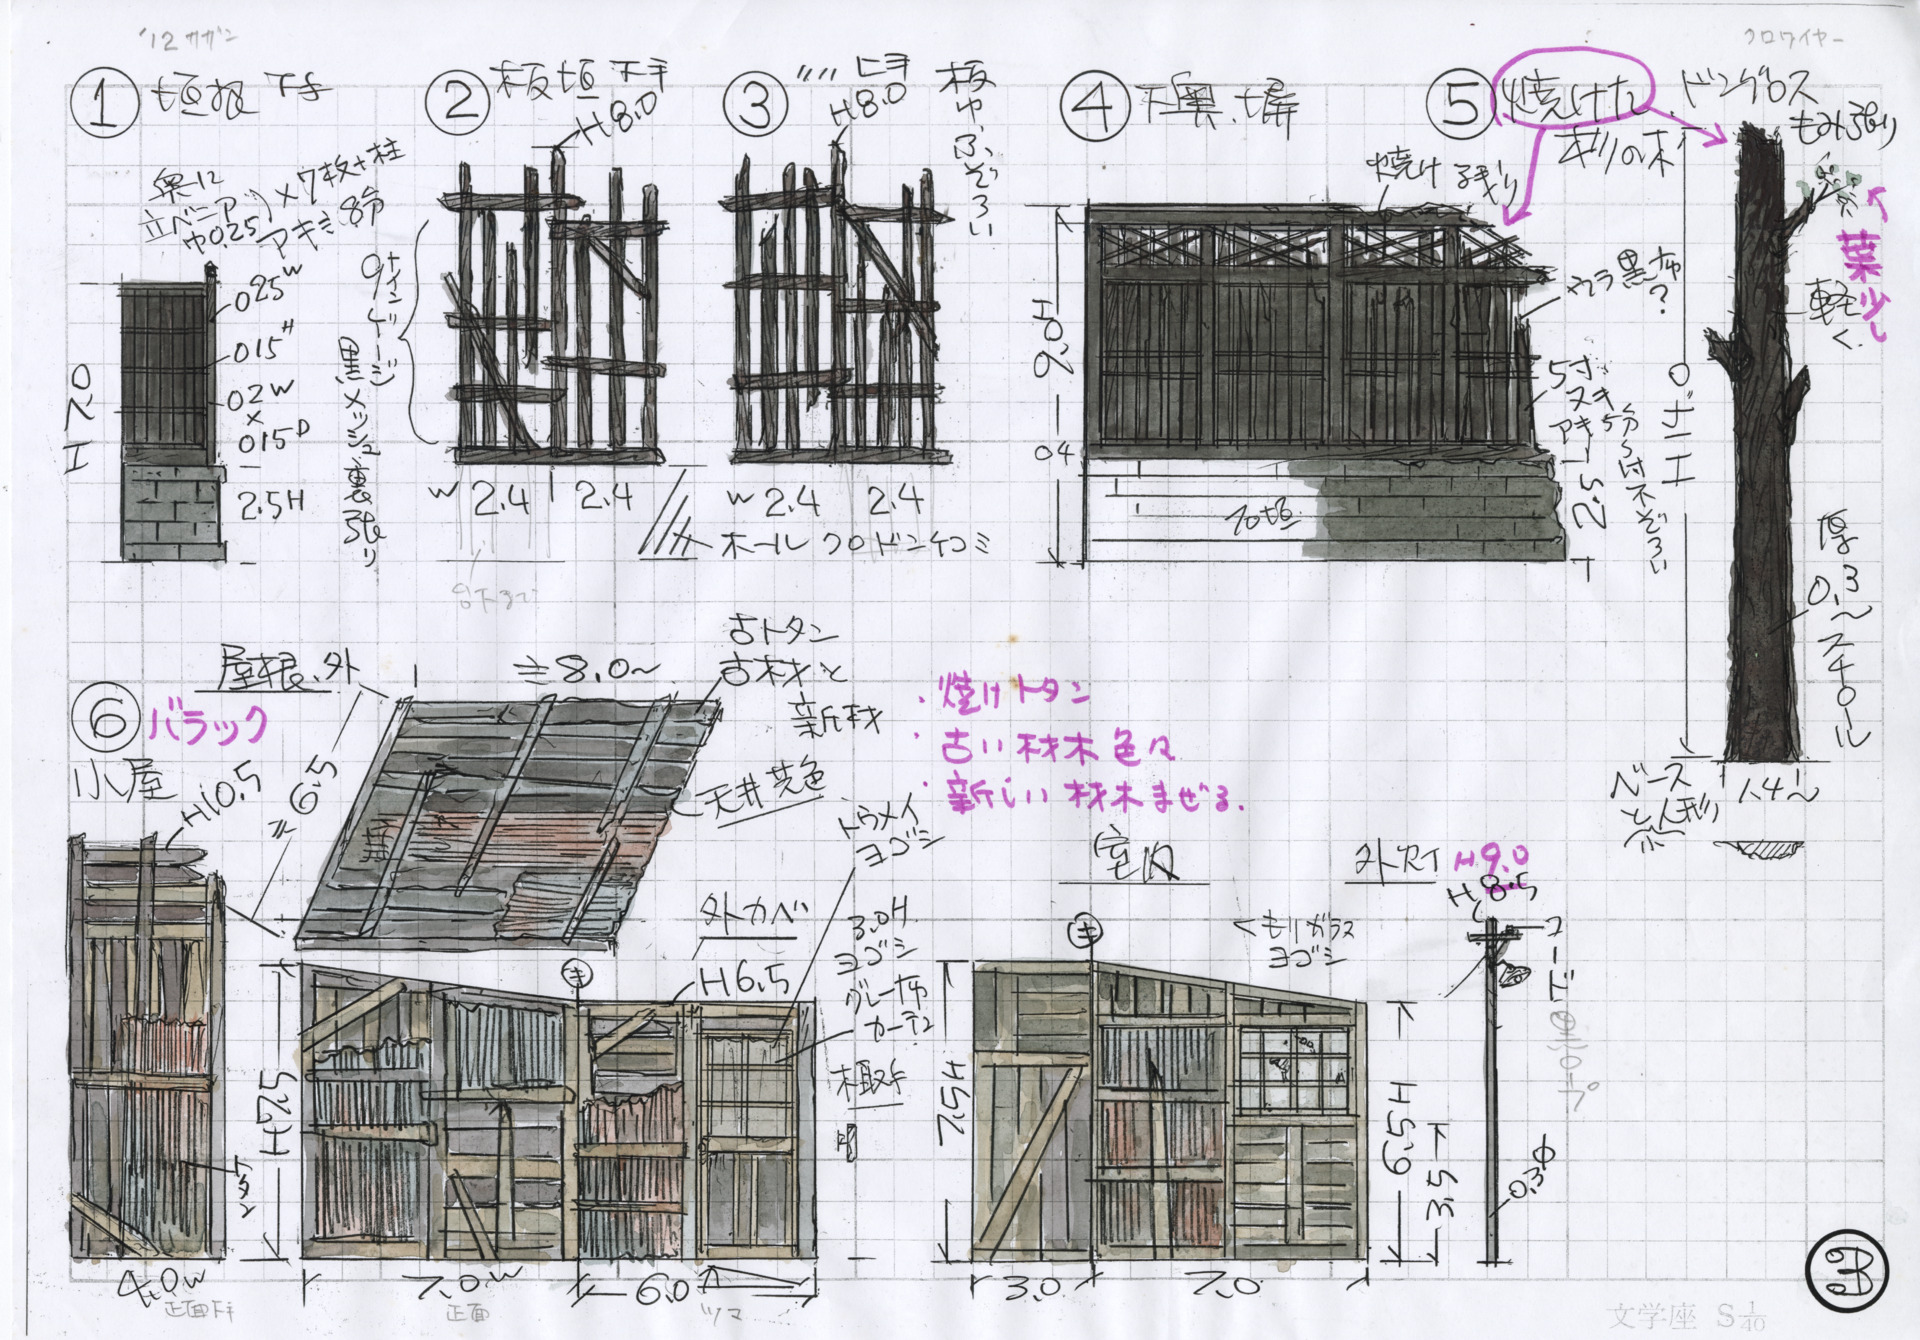 '12 カガン
クロワイヤー
① 垣根 下手
奥に
立ベニア
巾0.25
×7枚+柱
アキミ 8分
025W
015H
02W
×
015D
2.5H
H 7.0
② 板垣 下手
H8.0
9ナインゲージ
黒メッシュ裏張り
W 2.4 2.4
③ 〃 上手
H8.0
板巾ふぞろい
W 2.4 2.4
ホールクロドンケコミ
④ 下奥.塀
焼け残り
ウラ黒布?
H 9.0
04
5寸
ヌキ
アキ5分〜1寸不ぞろい
2.5
石垣
⑤ 焼けた
杉の木
ドンゴロス
もみ張り
葉少し
軽く
厚
0.3〜
スチロール
ベース
と人形
1.4'〜
⑥ バラック
小屋
屋根.外
≒8.0〜
≒6.5
古トタン
古木材と
新材
天井 茶色
・焼けトタン
・古い材木色々
・新しい材木まぜる.
H10.5
トタン
4.0W
正面下手
H7.5
7.0W
正面
6.0
ツマ
外カベ
H6.5
トウメイ
ヨゴシ
3.0H
ヨゴシ
グレー布
カーテン
取手
室内
<もりガラス
ヨゴシ
7.5H
3.0
7.0
6.5H
3.5
外灯 H9.0
H8.5
コード
0.3φ
文学座 S 1/40